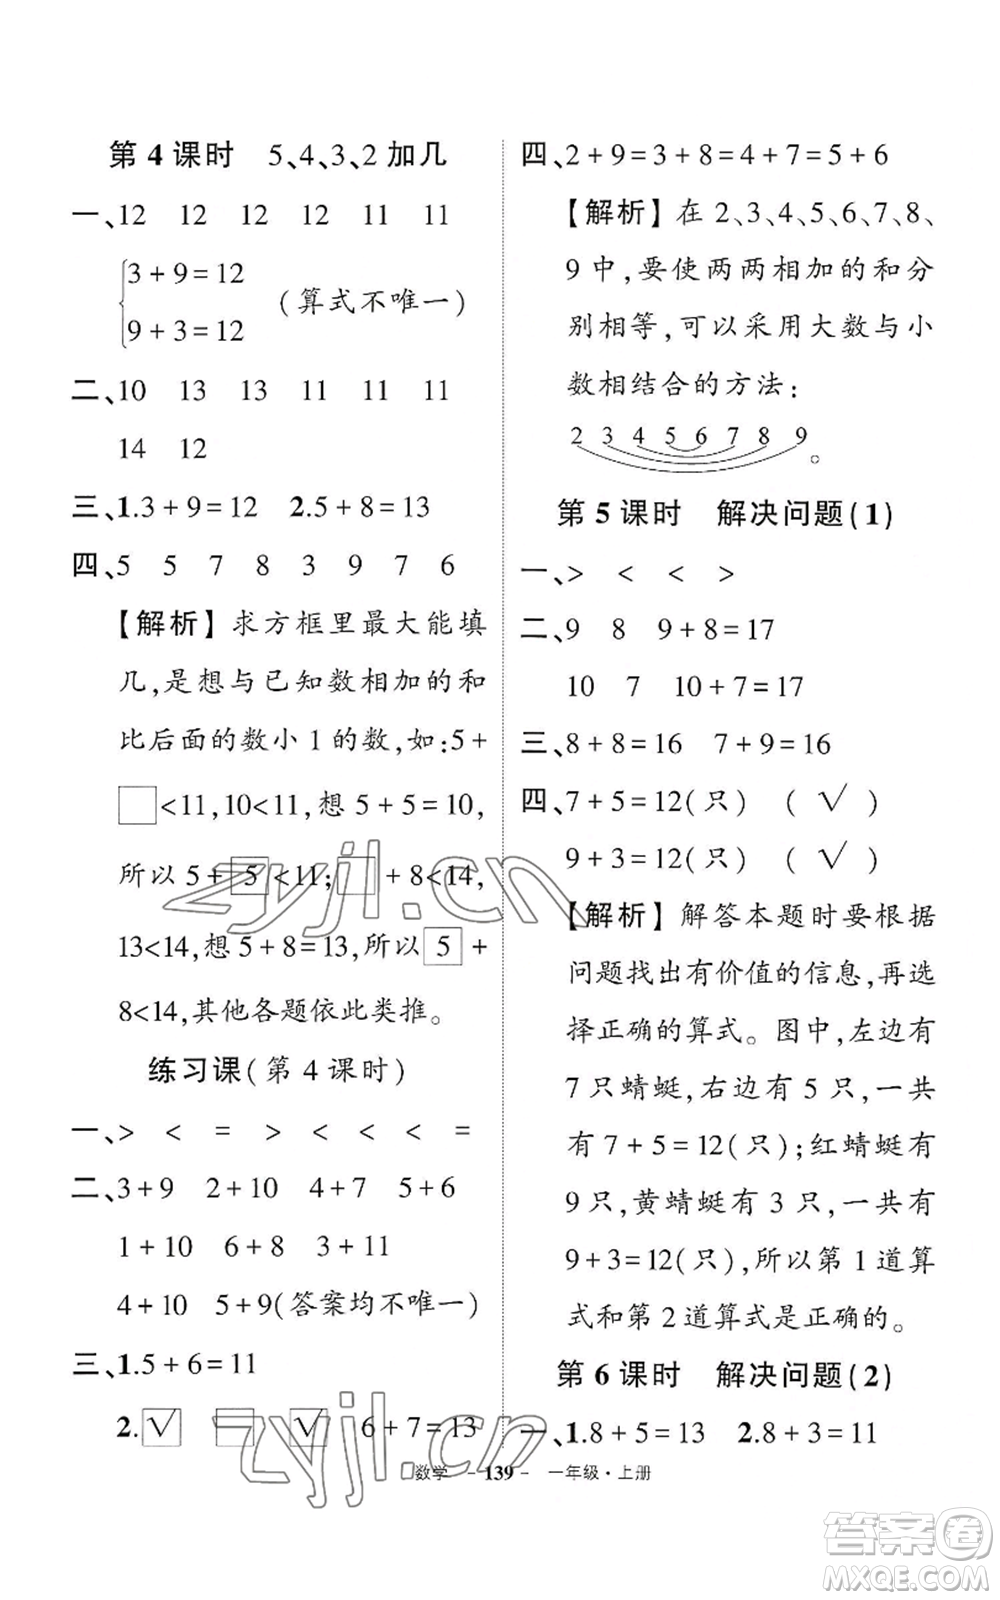 第4课时 5、4、3、2加几
一、12 12 12 12 11 11
3+9=12
9+3=12
(算式不唯一)
二、10 13 13 11 11 11
14 12
三、1.3+9=12 2.5+8=13
四、5 5 7 8 3 9 7 6
【解析】求方框里最大能填
几,是想与已知数相加的和
比后面的数小1的数,如:5+
□<11,10<11,想5+5=10,
所以5+5<11;□+8<14,
13<14,想5+8=13,所以5+
8<14,其他各题依此类推。
练习课(第4课时)
一、> < = > < < < =
二、3+9 2+10 4+7 5+6
1+10 6+8 3+11
4+10 5+9(答案均不唯一)
三、1.5+6=11
2.√ □ √ 6+7=13
四、2+9=3+8=4+7=5+6
【解析】在2、3、4、5、6、7、8、
9中,要使两两相加的和分
别相等,可以采用大数与小
数相结合的方法:
2 3 4 5 6 7 8 9。
第5课时 解决问题(1)
一、> < < >
二、9 8 9+8=17
10 7 10+7=17
三、8+8=16 7+9=16
四、7+5=12(只) (√)
9+3=12(只) (√)
【解析】解答本题时要根据
问题找出有价值的信息,再选
择正确的算式。图中,左边有
7只蜻蜓,右边有5只,一共
有7+5=12(只);红蜻蜓有
9只,黄蜻蜓有3只,一共有
9+3=12(只),所以第1道算
式和第2道算式是正确的。
第6课时 解决问题(2)
一、1.8+5=13 2.8+3=11
数学 -139- 一年级·上册
zyjl.cn
zyjl.cn
答案圈
MXQE.COM